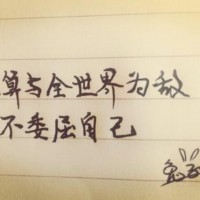 算与全世界为敌
不委屈自己
兔子